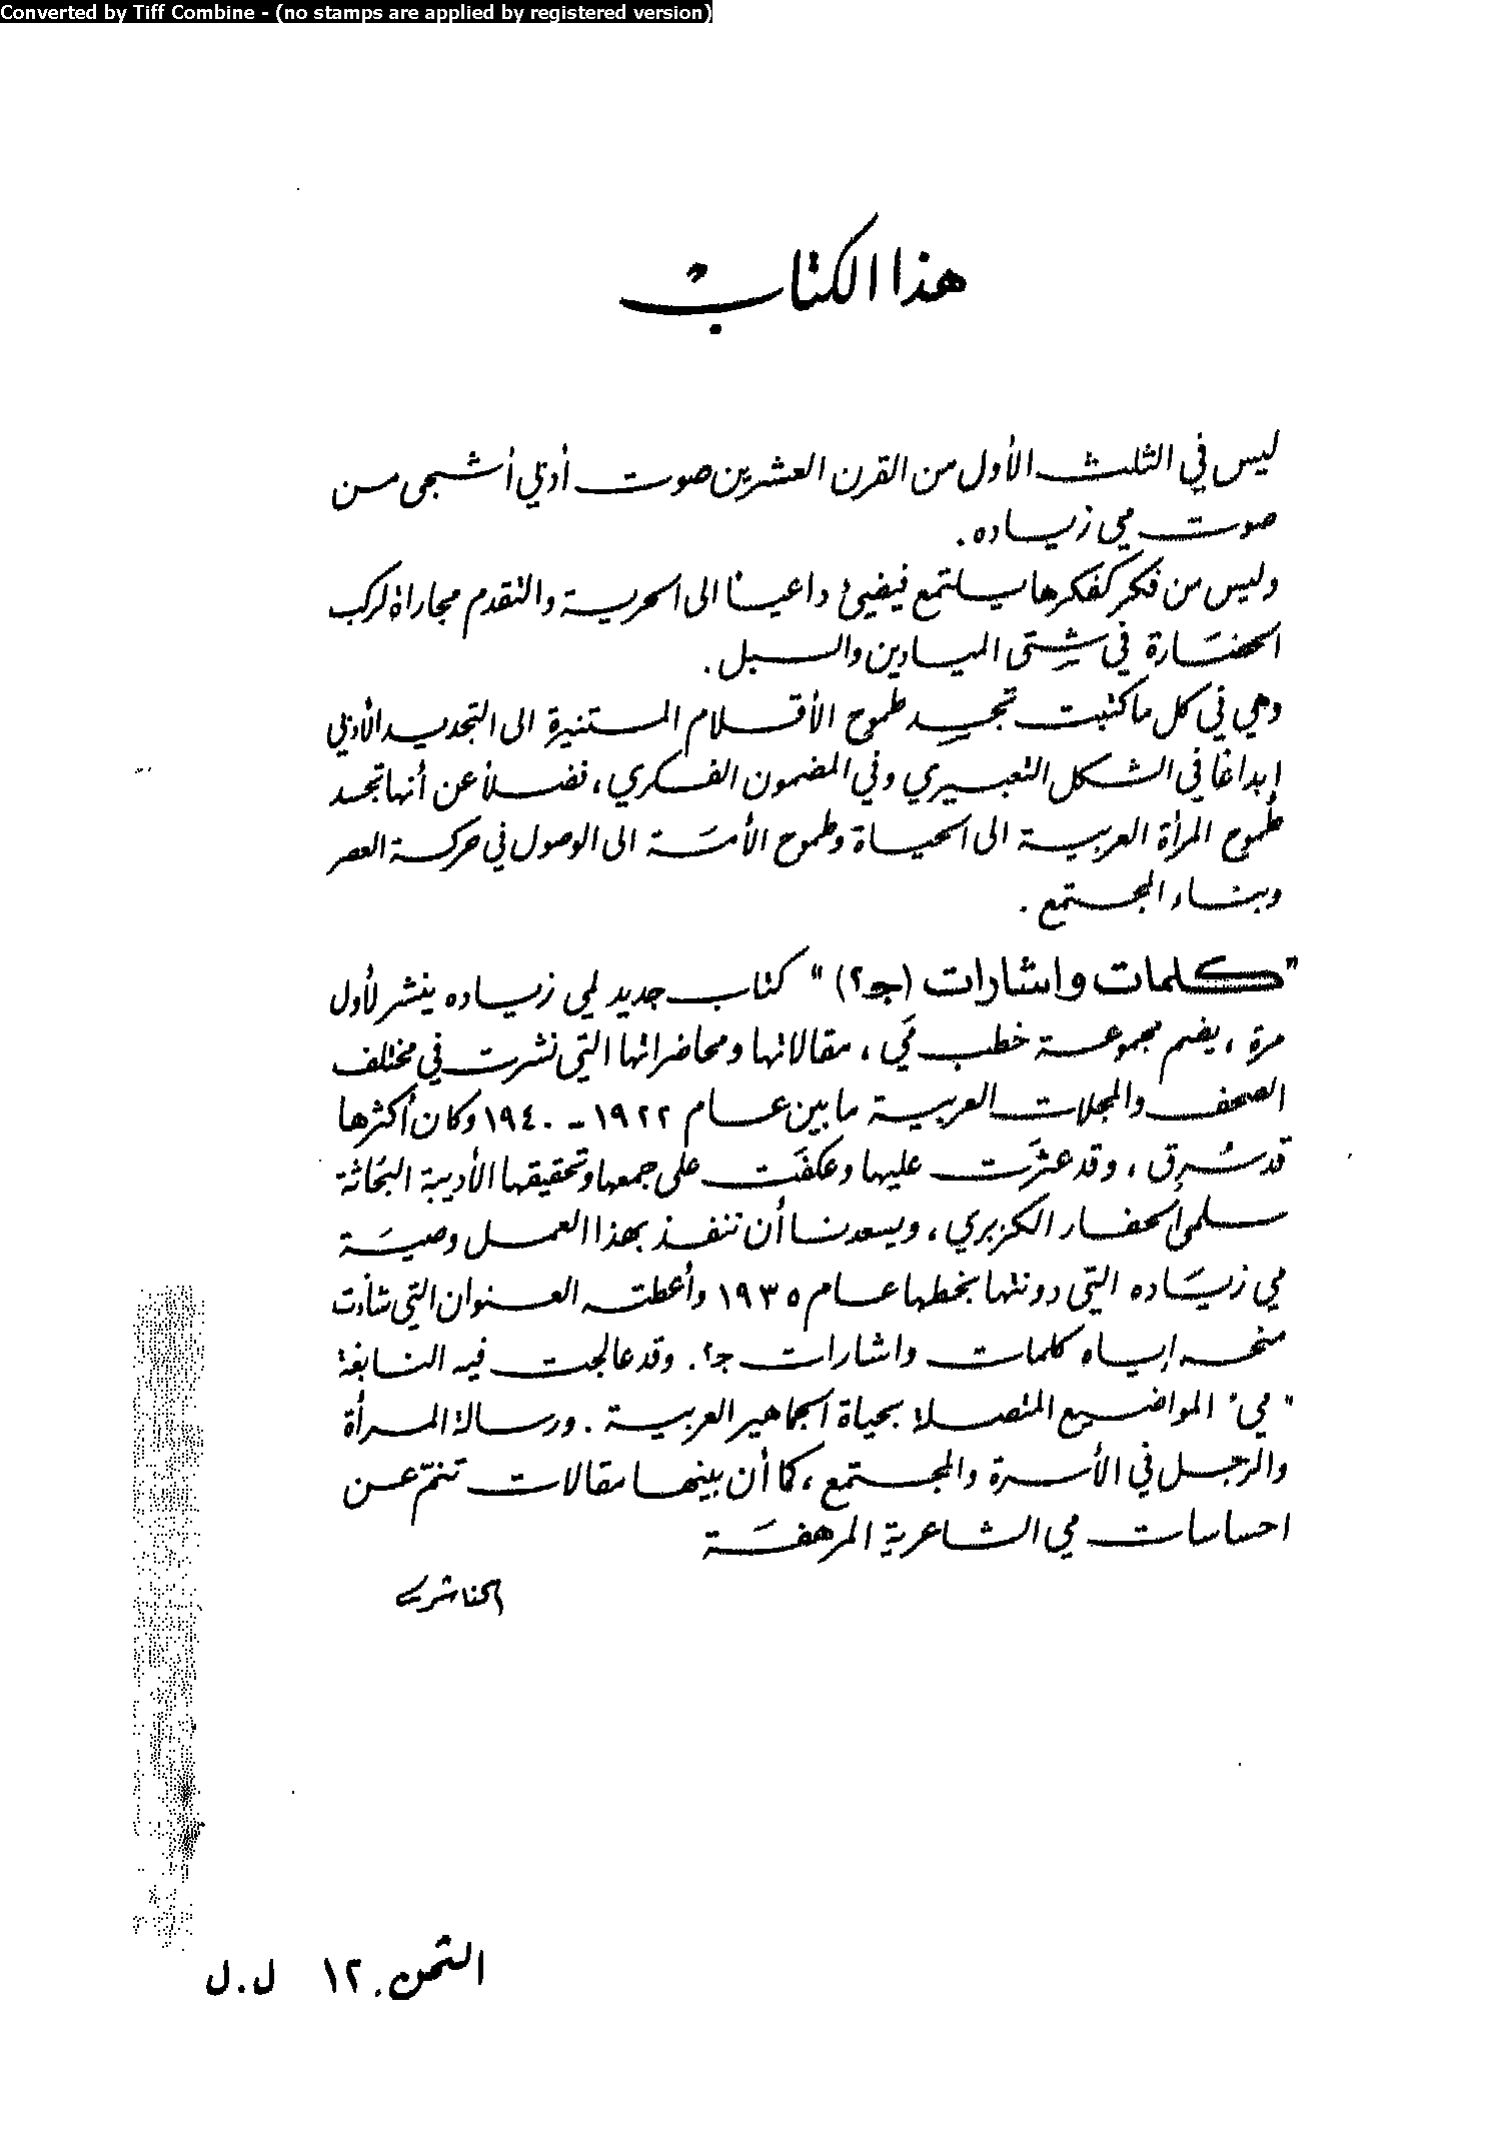 Converted by Tiff Combine - (no stamps are applied by registered version)
هذا الكتاب
ليس في الثلث الأول من القرن العشرين صوت أدبي أشجى من
صوت مي زياده.
وليس من فكر كفكرها يلتمع فيضيئ داعياً الى الحرية والتقدم مجاراة لركب
الحضَارة في شِتى الميادين والسبل.
وهي في كل ما كتبت تجسِد طموح الأقلام المستنيرة الى التجديد الأدبي
إبداعًا في الشكل التعبيري وفي المضمون الفكري، فضلاً عن أنها تجسد
طُموح المرأة العربية الى الحياة وطموح الأمَة الى الوصول في حركة العصر
وبناء المجتمع.
"كلمات واشارات (ج٢)" كتاب جديد لمي زياده ينشر لأول
مرة، يضم مجموعة خطب مَي، مقالاتها ومحاضراتها التي نشرت في مختلف
الصحف والمجلات العربية ما بين عام ١٩٢٢ - ١٩٤٠ وكان أكثرها
قد سُرِق، وقد عثَرت عليها وعكفَت على جمعها وتحقيقها الأديبة البحَاثة
سلمى الحفار الكزبري، ويسعدنا أن ننفذ بهذا العمل وصيَة
مي زيَاده التي دونتها بخطها عام ١٩٣٥ وأعطته العنوان التي شاءت
منحه إياه كلمات واشارات ج٢. وقد عالجت فيه النابغة
"مي" المواضيع المتصلة بحياة الجماهير العربية. ورسالة المرأة
والرجل في الأسرة والمجتمع، كما أن بينها مقالات تنمّ عن
احساسات مي الشاعرية المرهفَة
الناشر
الثمن. ١٢ ل.ل